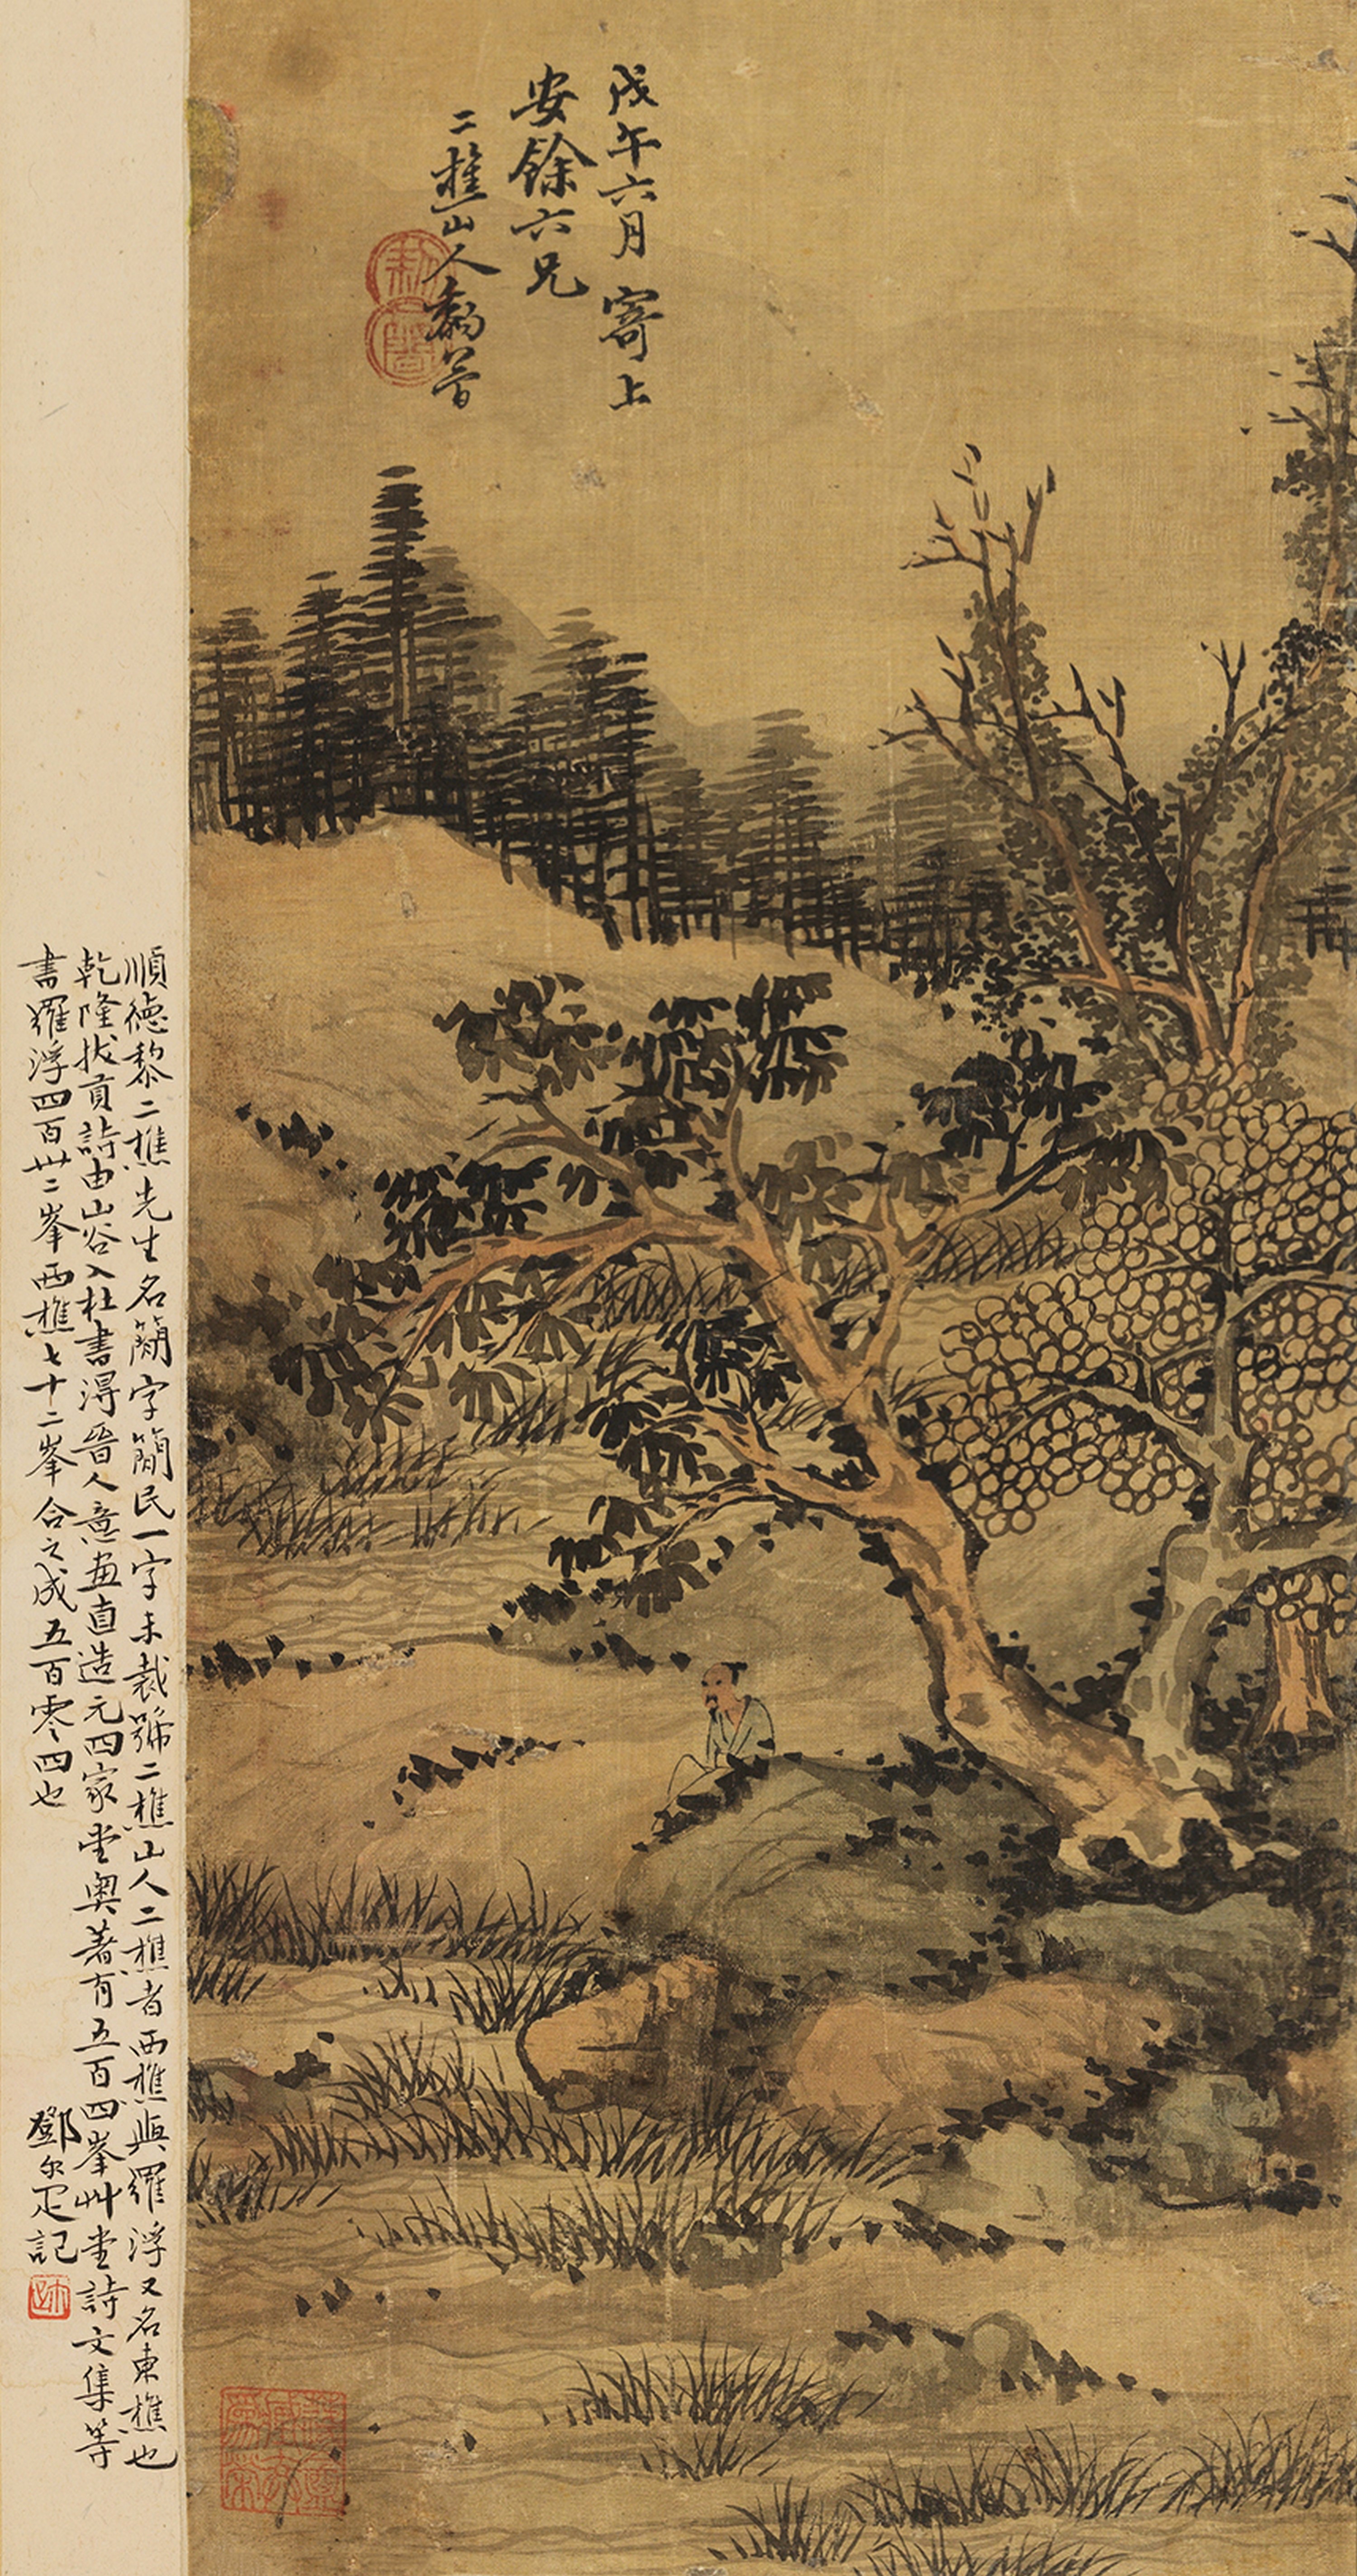 戊午六月寄上
安餘六兄
二樵山人黎簡
順德黎二樵先生名簡字簡民一字未裁號二樵山人二樵者西樵與羅浮又名東樵也
乾隆拔貢詩由山谷入杜書得晉人意畫直造元四家堂奧著有五百四峯艸堂詩文集等
書羅浮四百卅二峯西樵七十二峯合之成五百零四也
鄧尔疋記